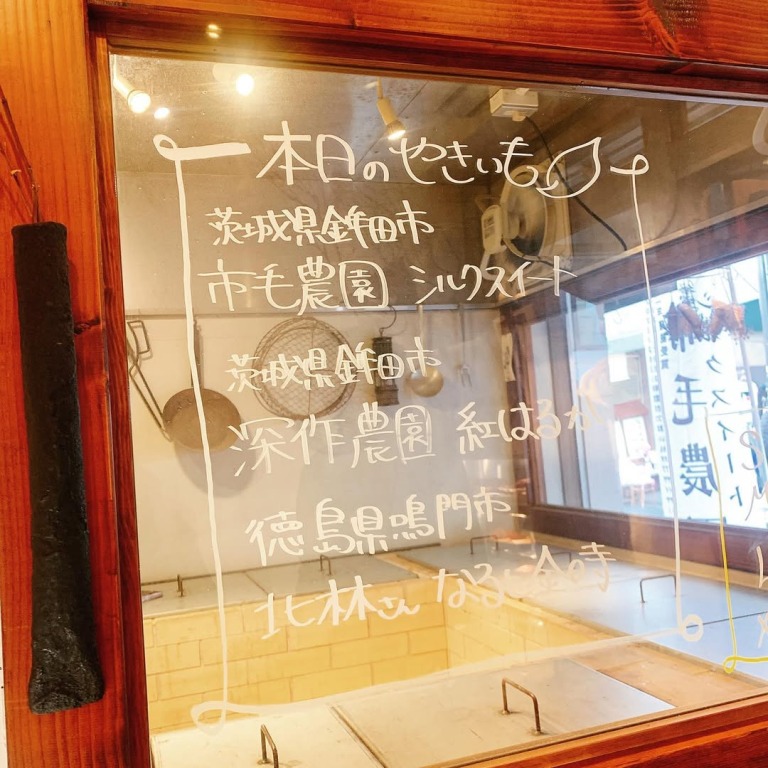 本日のやきいも
茨城県鉾田市
市毛農園 シルクスイート
茨城県鉾田市
深作農園 紅はるか
徳島県鳴門市
北林さん なると金時
毛農
クスイート